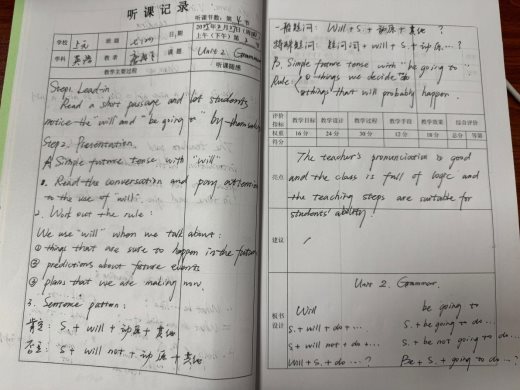 听课记录
听课节数:第 节
学校 班级 日期
上午(下午)第 节
学科 英语 教者 课题 Unit 2 Grammar
教学主要过程 听课随感
Step1. Lead-in
Read a short passage and let students
notice the "will" and "be going to" by themselves
Step 2. Presentation.
A. Simple future tense with "will"
1. Read the conversation and pay attention
to the use of will.
2. Work out the rule:
We use "will" when we talk about:
① things that are sure to happen in the future
② predictions about future events
③ plans that we are making now.
3. Sentence pattern:
肯定: S. + will + 动原 + 其他
否定: S + will not + 动原 + 其他
一般疑问: Will + S. + 动原 + 其他?
特殊疑问: 疑问词 + will + S. + 动原...?
B. Simple future tense with "be going to"
Rule: ① things we decide to do
② things that will probably happen.
评价指标 教学目标 教学设计 教学过程 教学手段 教学效果 综合评价
权重 16分 24分 30分 12分 18分 总分 等第
得分
亮点
The teacher's pronunciation is good
and the class is full of logic and
the teaching steps are suitable for
students' ability!
建议
板书设计
Unit 2. Grammar.
Will be going to
S. + will + do + ... S. + be going to do ...
S. + will not + do ... S. + be not going to do ...
Will + S. + do ...? Be + S. + going to do ...?